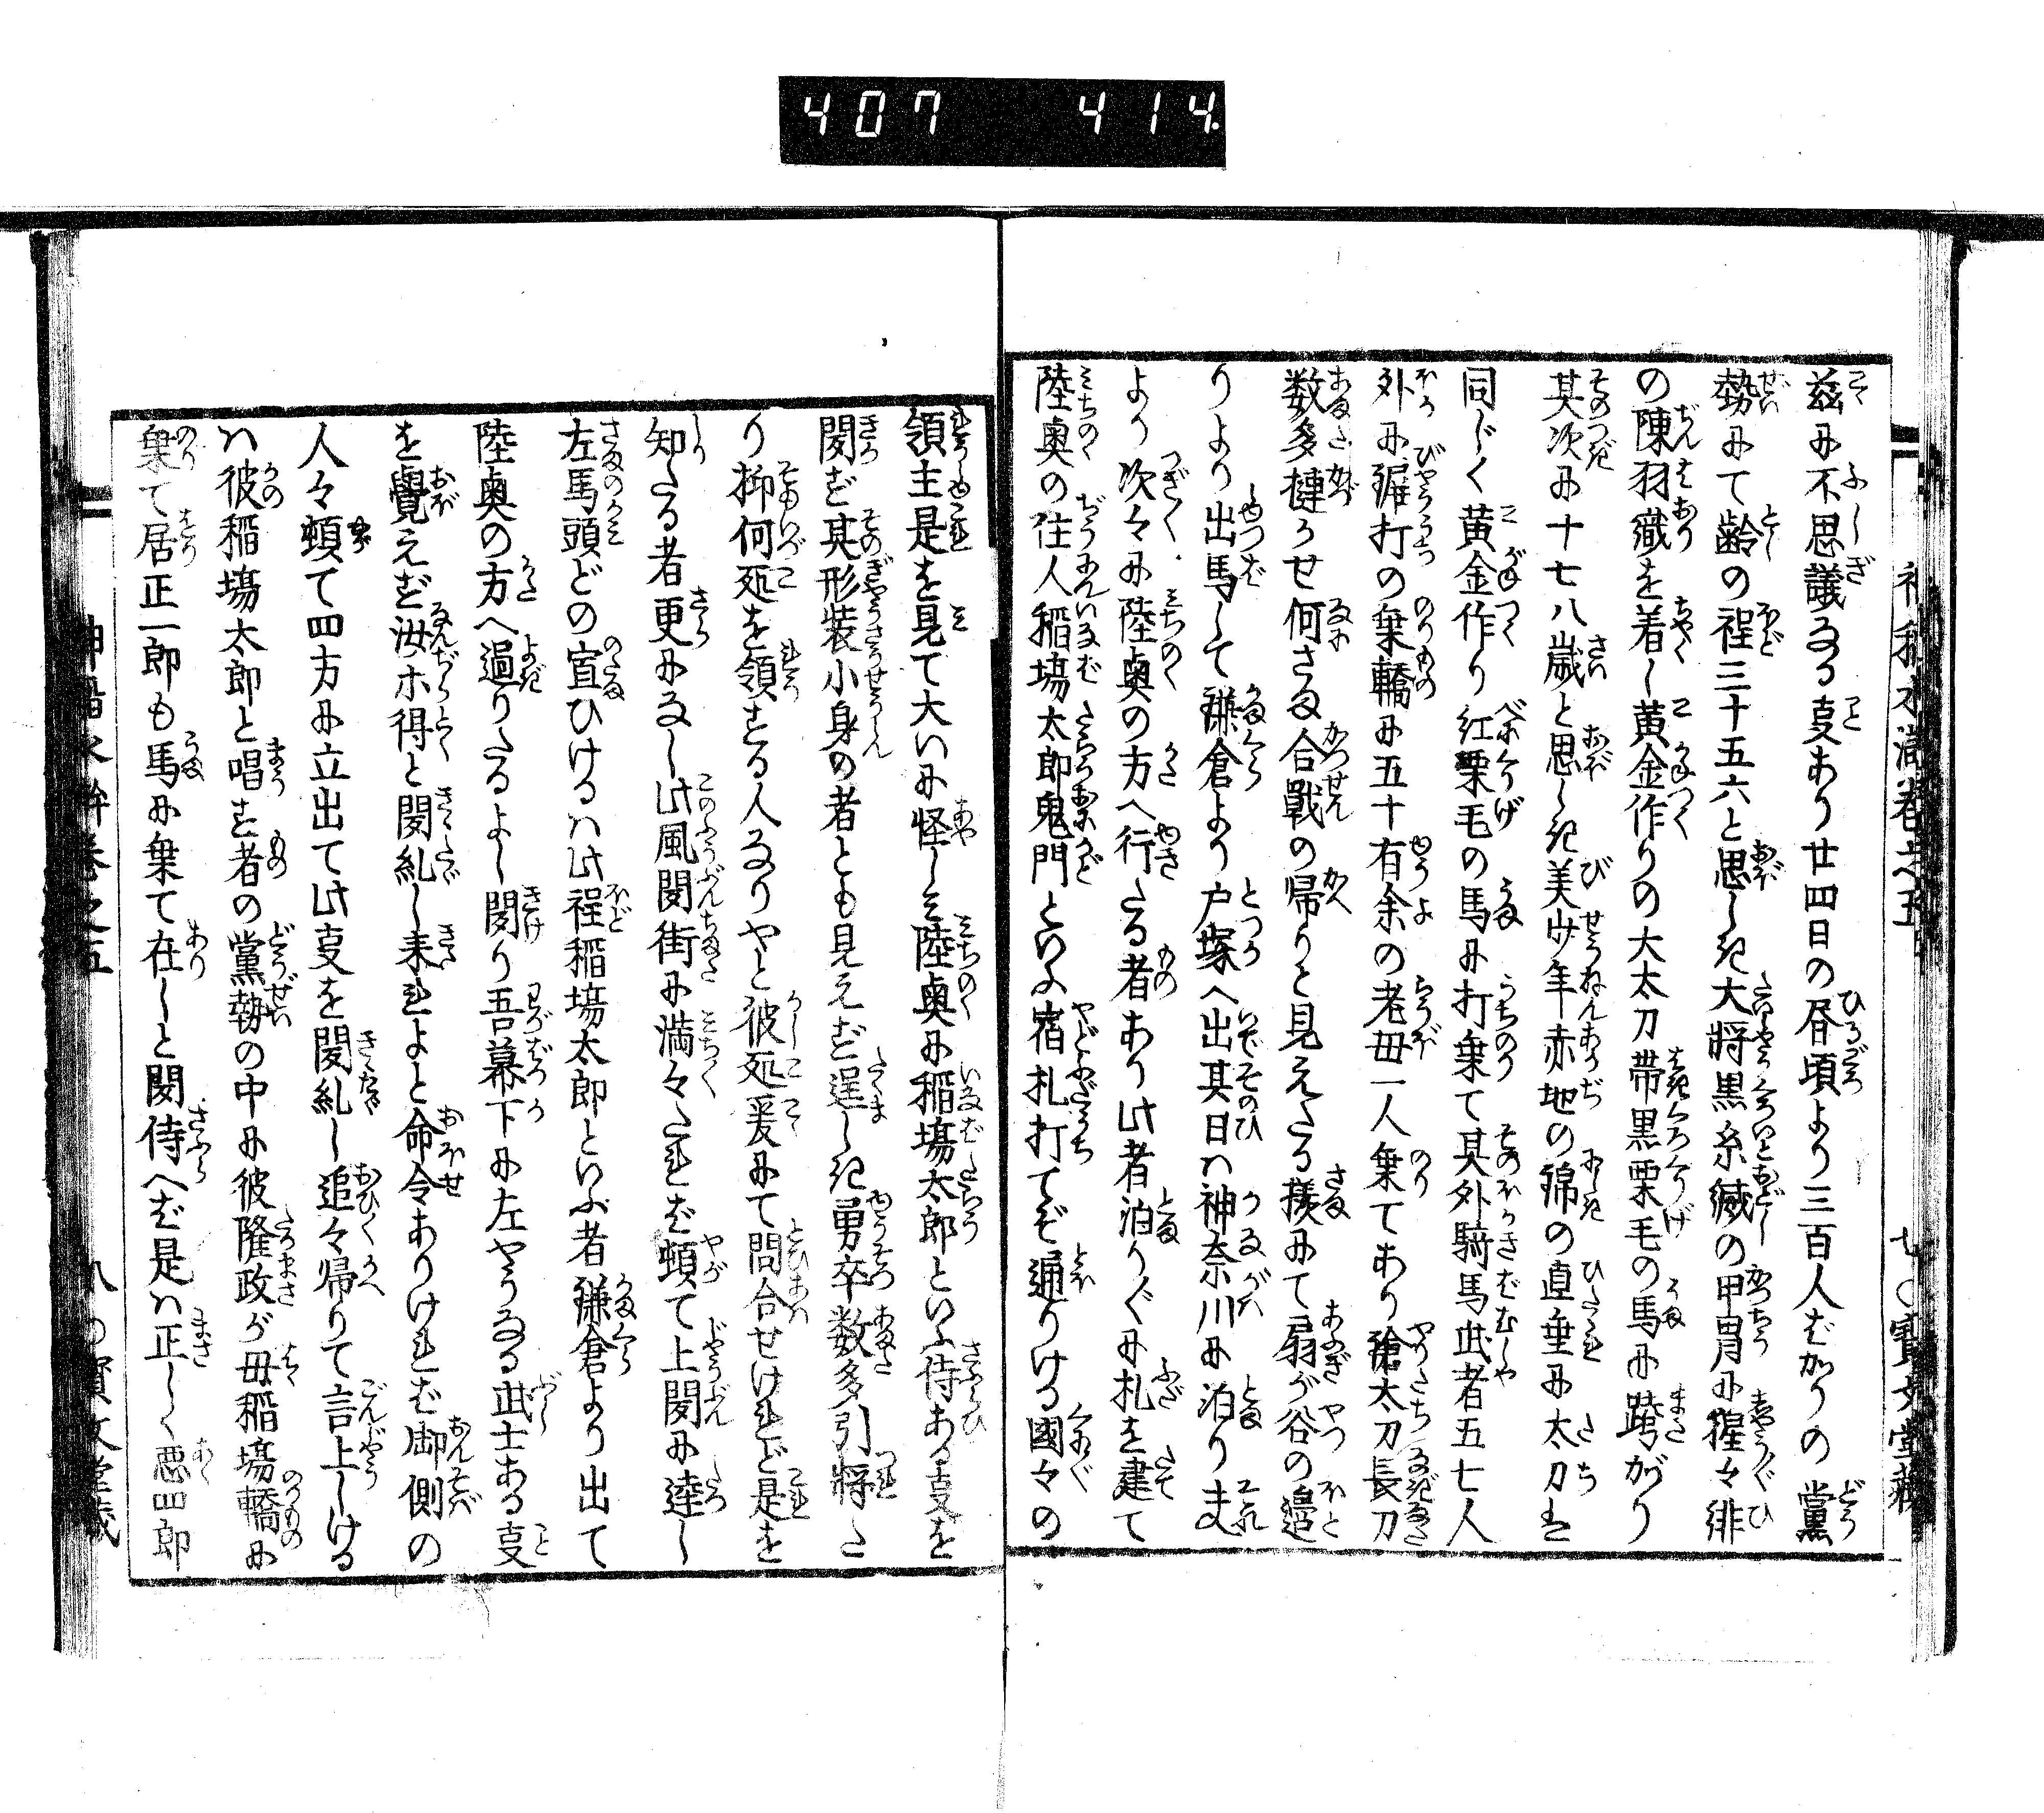 407 414
茲に不思議なる㕝あり廿四日の昼頃より三百人ばかりの黨
勢にて齢の程三十五六と思しき大将黒糸縅の甲冑に猩々緋
の陳羽織を着し黄金作りの大太刀帯黒栗毛の馬に跨がり
其次に十七八歳と思しき美少年赤地の錦の直垂に太刀は
同じく黄金作り紅栗毛の馬に打乗て其外騎馬武者五七人
外に網打の乗轎に五十有余の老母一人乗てあり鎗太刀長刀
数多擔うせ何さま合戦の帰りと見えたる様にて扇が谷の邉
りより出馬して鎌倉より戸塚へ出其日ハ神奈川に泊り夫
より次々に陸奥の方へ行たる者あり此者泊り〳〵に札を建て
陸奥の住人稲塲太郎鬼門といふ宿札打てぞ通りける國々の
領主是を見て大いに怪しミ陸奥に稲塲太郎といふ侍ある㕝を
聞ず其形装小身の者とも見えず逞しき勇卒数多引将た
り抑何処を領する人なりやと彼処爰にて問合せけれど是を
知たる者更になし此風聞街に満々たれば頓て上聞に達し
左馬頭どの宣ひけるハ此程稲塲太郎といふ者鎌倉より出て
陸奥の方へ過りたるよし聞り吾幕下に左やうなる武士ある㕝
を覺えず汝ホ得と聞糺し来れよと命令ありければ御側の
人々頓て四方に立出て此㕝を聞糺し追々帰りて言上しける
ハ彼稲塲太郎と唱る者の黨勢の中に彼隆政が母稲塲轎に
乗て居正一郎も馬に乗て在しと聞侍へば是ハ正しく悪四郎